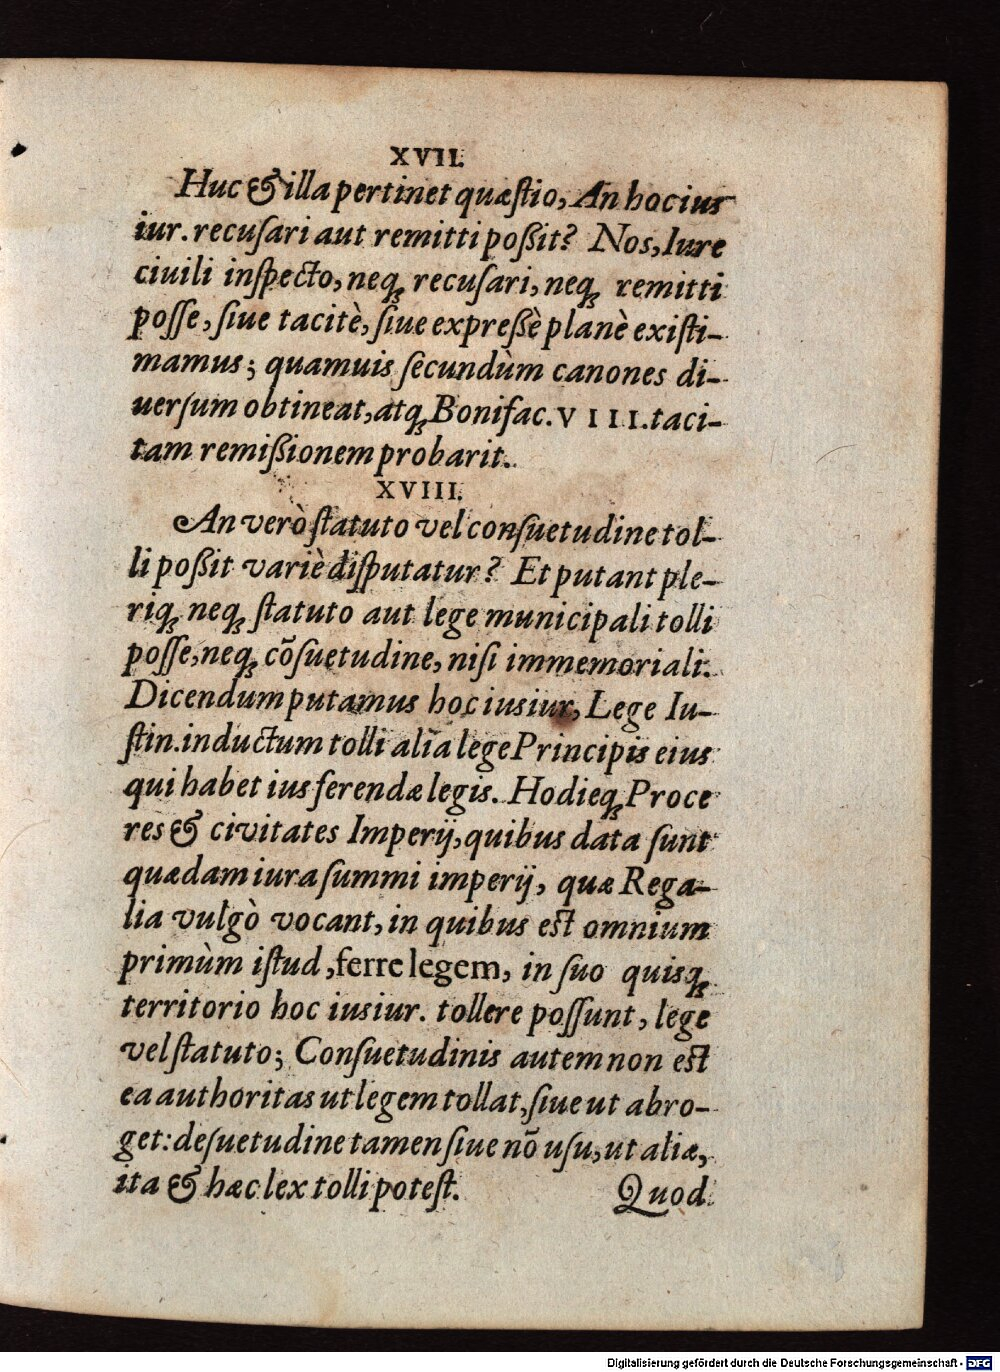 XVII.
Huc & illa pertinet quæstio, An hoc ius
iur. recusari aut remitti poßit? Nos, Iure
ciuili inspecto, neq; recusari, neq; remitti
posse, siue tacitè, siue expreßè planè existi-
mamus; quamuis secundùm canones di-
uersum obtineat, atq; Bonifac. VIII. taci-
tam remißionem probarit.
XVIII.
An verò statuto vel consuetudine tol-
li poßit variè disputatur? Et putant ple-
riq; neq; statuto aut lege municipali tolli
posse, neq; cõsuetudine, nisi immemoriali.
Dicendum putamus hoc iusiur, Lege Iu-
stin. inductum tolli alia lege Principis eius
qui habet ius ferendæ legis. Hodieq; Proce
res & civitates Imperij, quibus data sunt
quædam iura summi imperij, quæ Rega-
lia vulgò vocant, in quibus est omnium
primùm istud, ferre legem, in suo quisq;
territorio hoc iusiur. tollere possunt, lege
vel statuto; Consuetudinis autem non est
ea authoritas ut legem tollat, siue ut abro-
get: desuetudine tamen siue nõ usu, ut aliæ,
ita & hæc lex tolli potest.
Quod
Digitalisierung gefördert durch die Deutsche Forschungsgemeinschaft - DFG